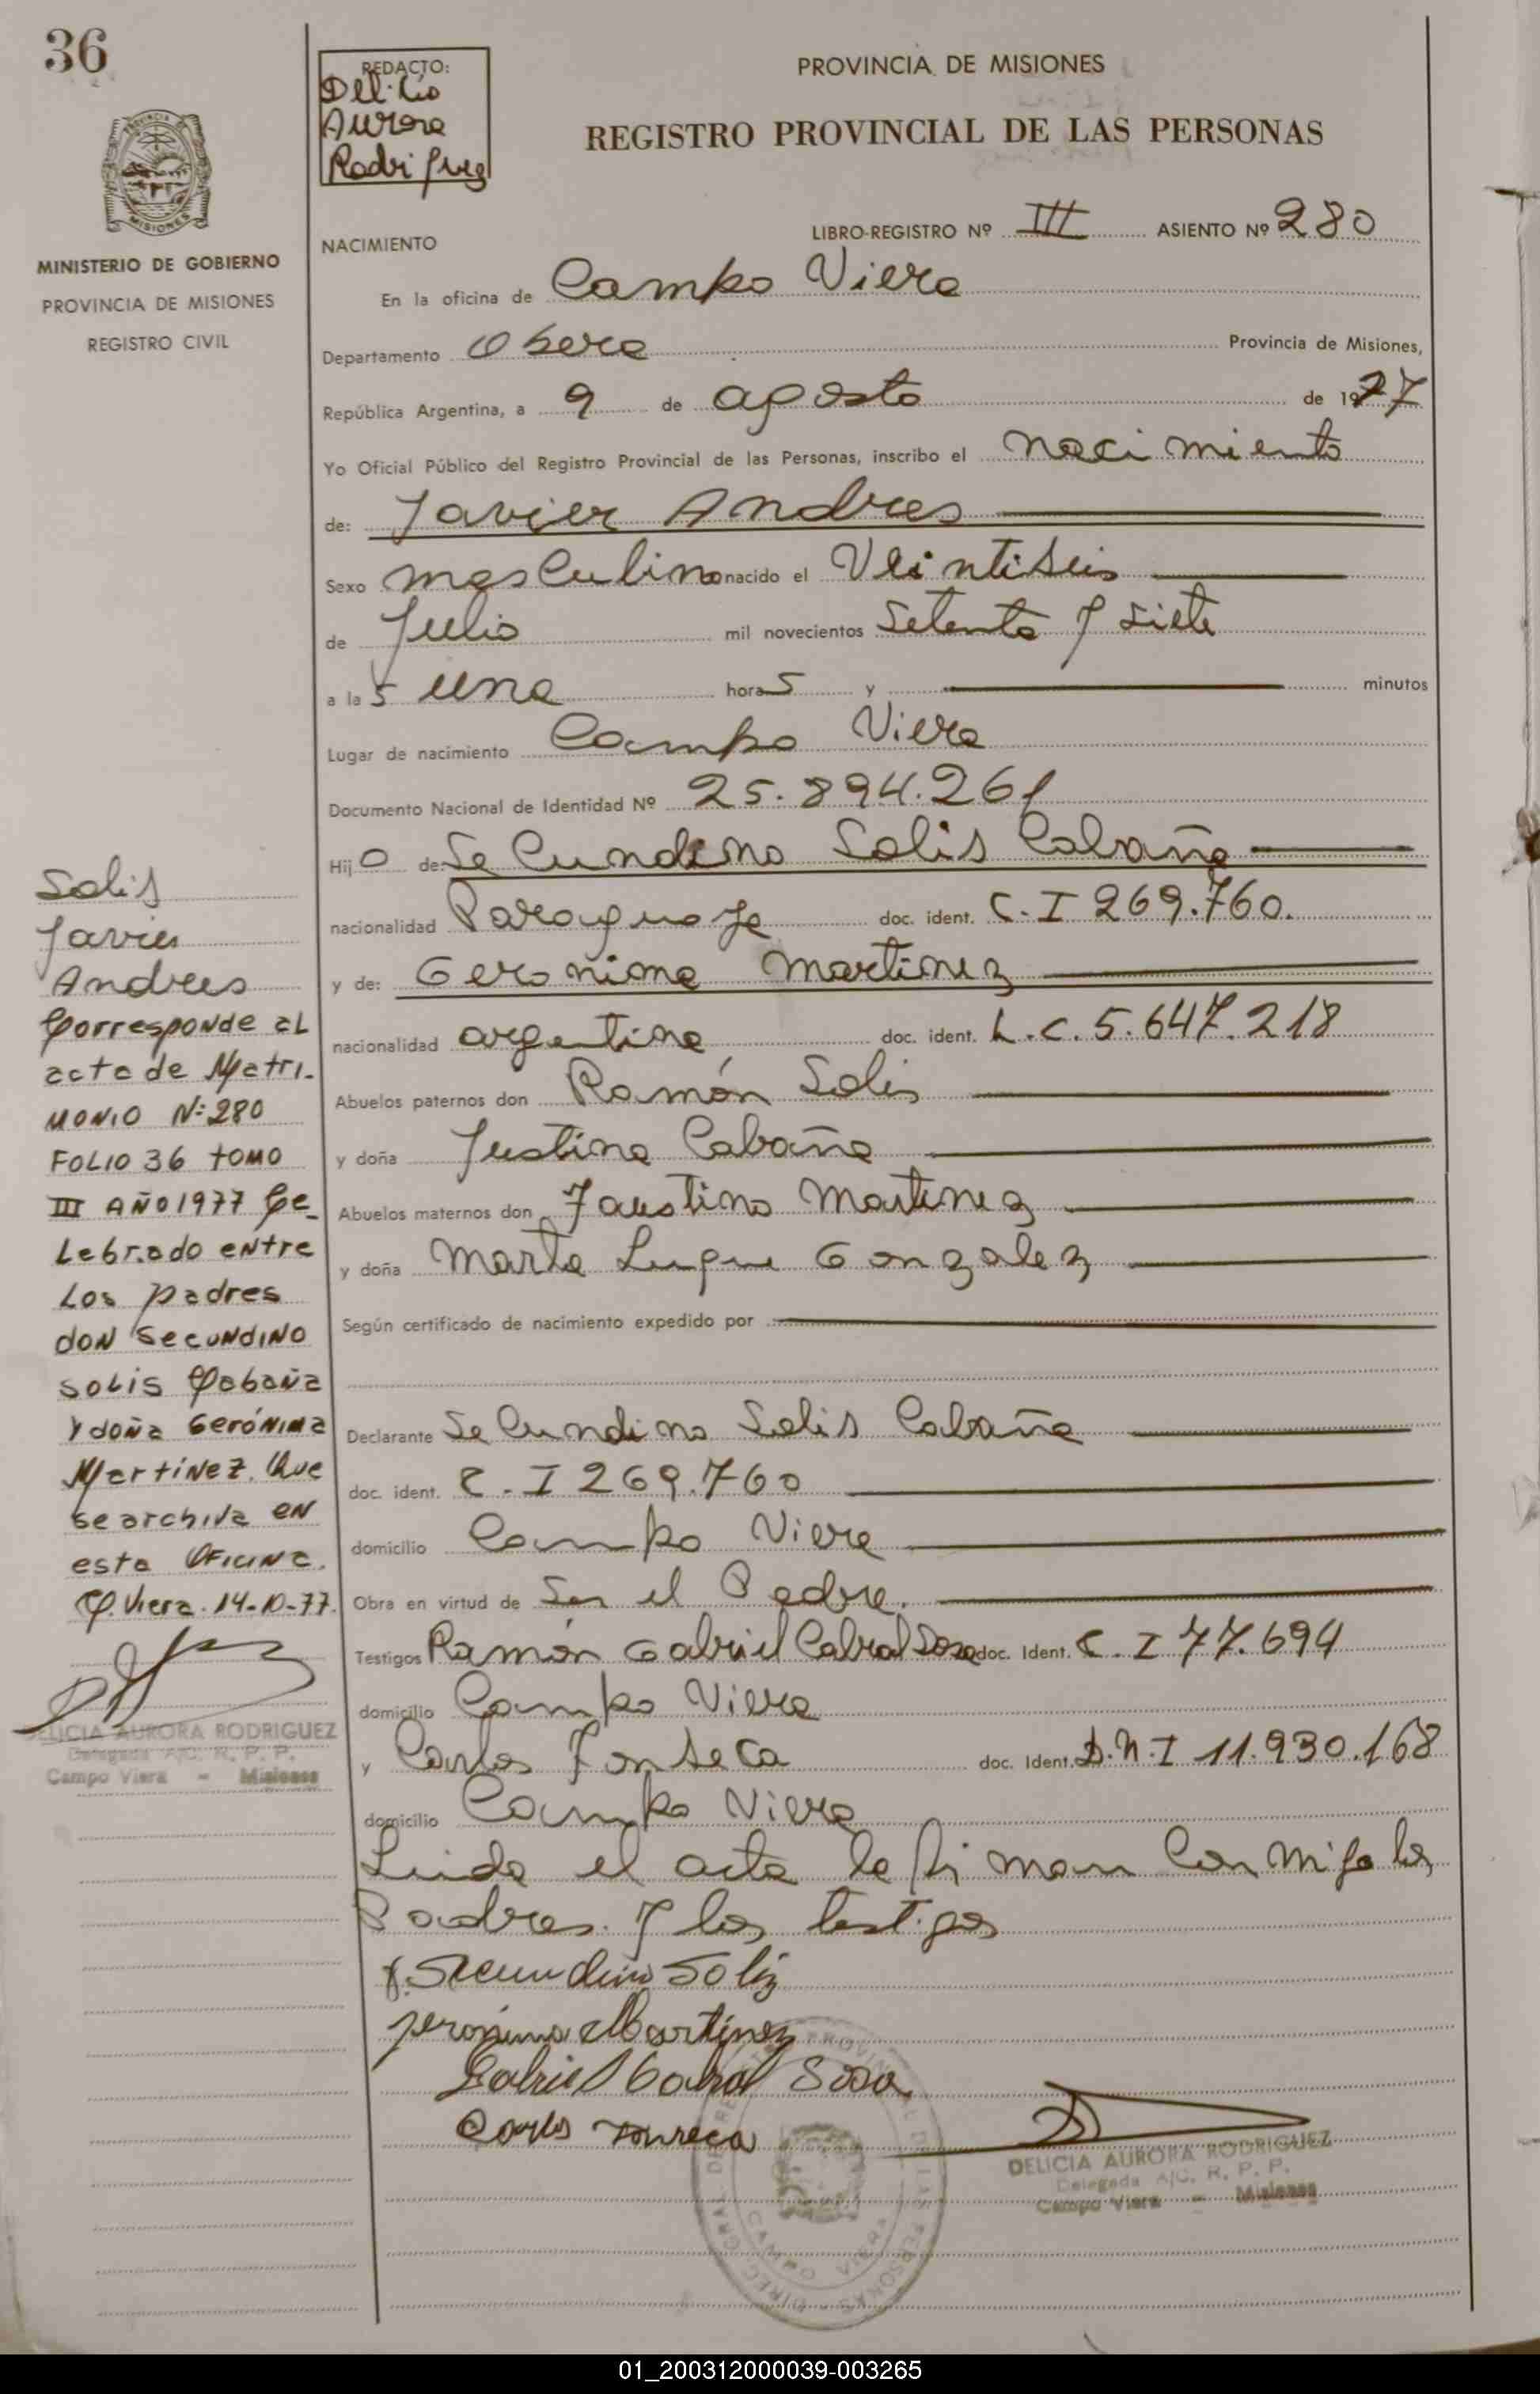 36
REDACTO:
Delicia
Aurora
Rodriguez
PROVINCIA DE MISIONES
REGISTRO PROVINCIAL DE LAS PERSONAS
MISIONES
MINISTERIO DE GOBIERNO
PROVINCIA DE MISIONES
REGISTRO CIVIL
NACIMIENTO
LIBRO-REGISTRO Nº III ASIENTO Nº 280
En la oficina de Campo Viera
Departamento Obera Provincia de Misiones,
República Argentina, a 9 de agosto de 1977
Yo Oficial Público del Registro Provincial de las Personas, inscribo el nacimiento
de: Javier Andres
Sexo masculino nacido el Veintiseis
de Julio mil novecientos Setenta y siete
a las una horas y minutos
Lugar de nacimiento Campo Viera
Documento Nacional de Identidad Nº 25.894.261
Hijo de: Secundino Solis Cabaña
nacionalidad Paraguaya doc. ident. C.I 269.760.
y de: Geronima Martinez
nacionalidad argentina doc. ident. L.C. 5.647.218
Abuelos paternos don Ramón Solis
y doña Justina Cabaña
Abuelos maternos don Faustino Martinez
y doña Marta Luque Gonzalez
Según certificado de nacimiento expedido por
Declarante Secundino Solis Cabaña
doc. ident. C.I 269.760
domicilio Campo Viera
Obra en virtud de Ser el Padre.
Testigos Ramón Gabriel Cabral Sosa doc. Ident. C.I 77.694
domicilio Campo Viera
y Carlos Fonseca doc. Ident. D.N.I 11.930.168
domicilio Campo Viera
Leida el acta la firman Conmigo los
Padres y los testigos
Secundino Soliz
Jeronima Martinez
Gabriel Cabral Sosa
Carlos Fonseca
DELICIA AURORA RODRIGUEZ
Delegada A/C. R. P. P.
Campo Viera - Misiones
Solis
Javier
Andres
Corresponde al
acta de Matri-
monio N: 280
Folio 36 tomo
III AÑO 1977 Ce-
lebrado entre
Los padres
don Secundino
Solis Cabaña
y doña Gerónima
Martínez. Que
se archiva en
esta oficina.
C. Viera. 14-10-77.
DELICIA AURORA RODRIGUEZ
Delegada A/C. R. P. P.
Campo Viera - Misiones
01_200312000039-003265